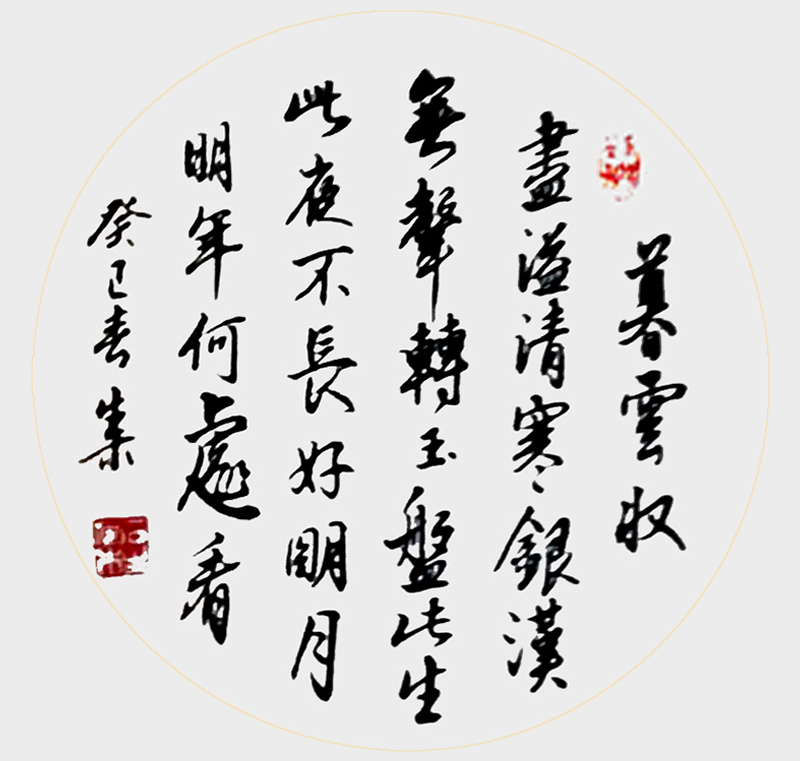 暮雲収
盡溢清寒銀漢
無聲轉玉盤此生
此夜不長好明月
明年何處看
癸巳春集